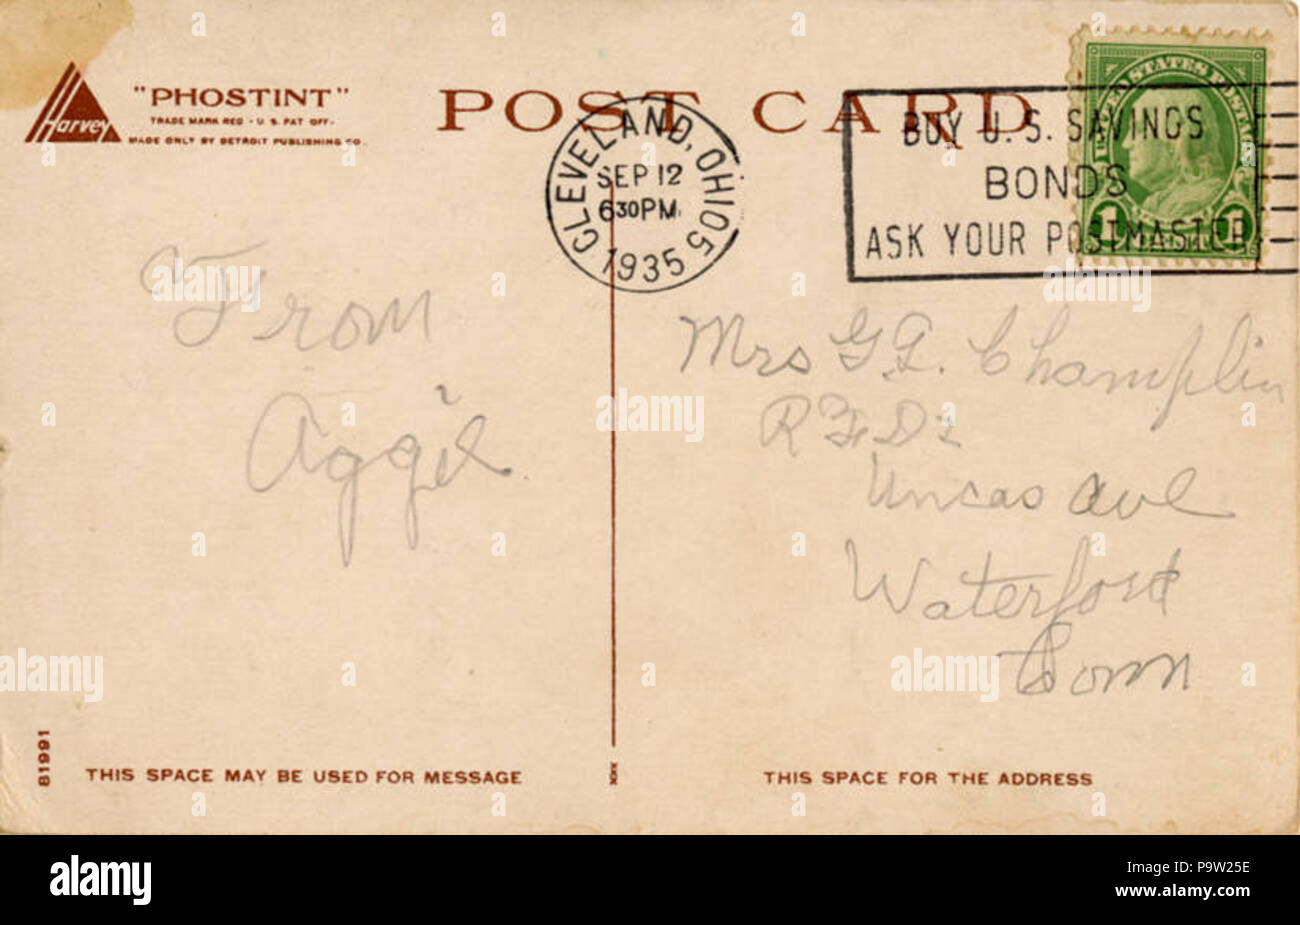 Harvey
"PHOSTINT"
TRADE MARK REG. U.S. PAT OFF.
MADE ONLY BY DETROIT PUBLISHING CO.
POST CARD
CLEVELAND, OHIO
SEP 12
6 30 PM
1935
BUY U.S. SAVINGS
BONDS
ASK YOUR POSTMASTER
UNITED STATES POSTAGE
1 1
From
Aggie
Mrs G.F. Champlin
R.F.D.
Uncas Ave
Waterford
Conn
81991
THIS SPACE MAY BE USED FOR MESSAGE
THIS SPACE FOR THE ADDRESS
alamy
alamy stock photo
P9W25E
www.alamy.com